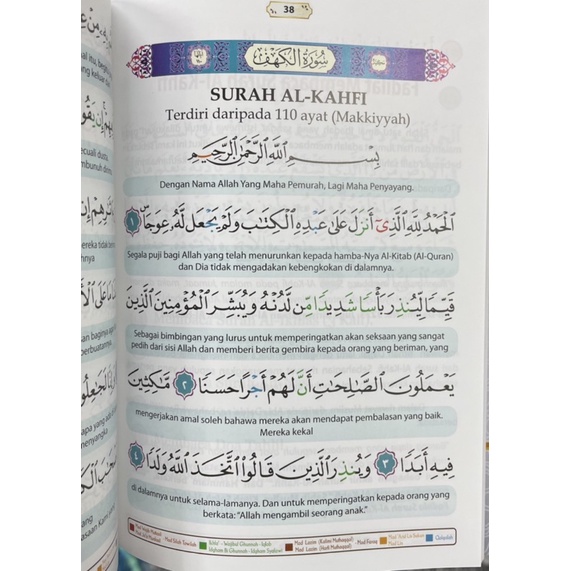 38
سُورَةُ الْكَهْفِ
SURAH AL-KAHFI
Terdiri daripada 110 ayat (Makkiyyah)
بِسْمِ اللَّهِ الرَّحْمَٰنِ الرَّحِيمِ
Dengan Nama Allah Yang Maha Pemurah, Lagi Maha Penyayang.
الْحَمْدُ لِلَّهِ الَّذِي أَنْزَلَ عَلَىٰ عَبْدِهِ الْكِتَابَ وَلَمْ يَجْعَلْ لَهُ عِوَجًا ۜ ١
Segala puji bagi Allah yang telah menurunkan kepada hamba-Nya Al-Kitab (Al-Quran)
dan Dia tidak mengadakan kebengkokan di dalamnya.
قَيِّمًا لِيُنْذِرَ بَأْسًا شَدِيدًا مِنْ لَدُنْهُ وَيُبَشِّرَ الْمُؤْمِنِينَ الَّذِينَ
Sebagai bimbingan yang lurus untuk memperingatkan akan seksaan yang sangat
pedih dari sisi Allah dan memberi berita gembira kepada orang yang beriman, yang
يَعْمَلُونَ الصَّالِحَاتِ أَنَّ لَهُمْ أَجْرًا حَسَنًا ٢ مَاكِثِينَ
mengerjakan amal soleh bahawa mereka akan mendapat pembalasan yang baik.
Mereka kekal
فِيهِ أَبَدًا ٣ وَيُنْذِرَ الَّذِينَ قَالُوا اتَّخَذَ اللَّهُ وَلَدًا ٤
di dalamnya untuk selama-lamanya. Dan untuk memperingatkan kepada orang yang
berkata: "Allah mengambil seorang anak."